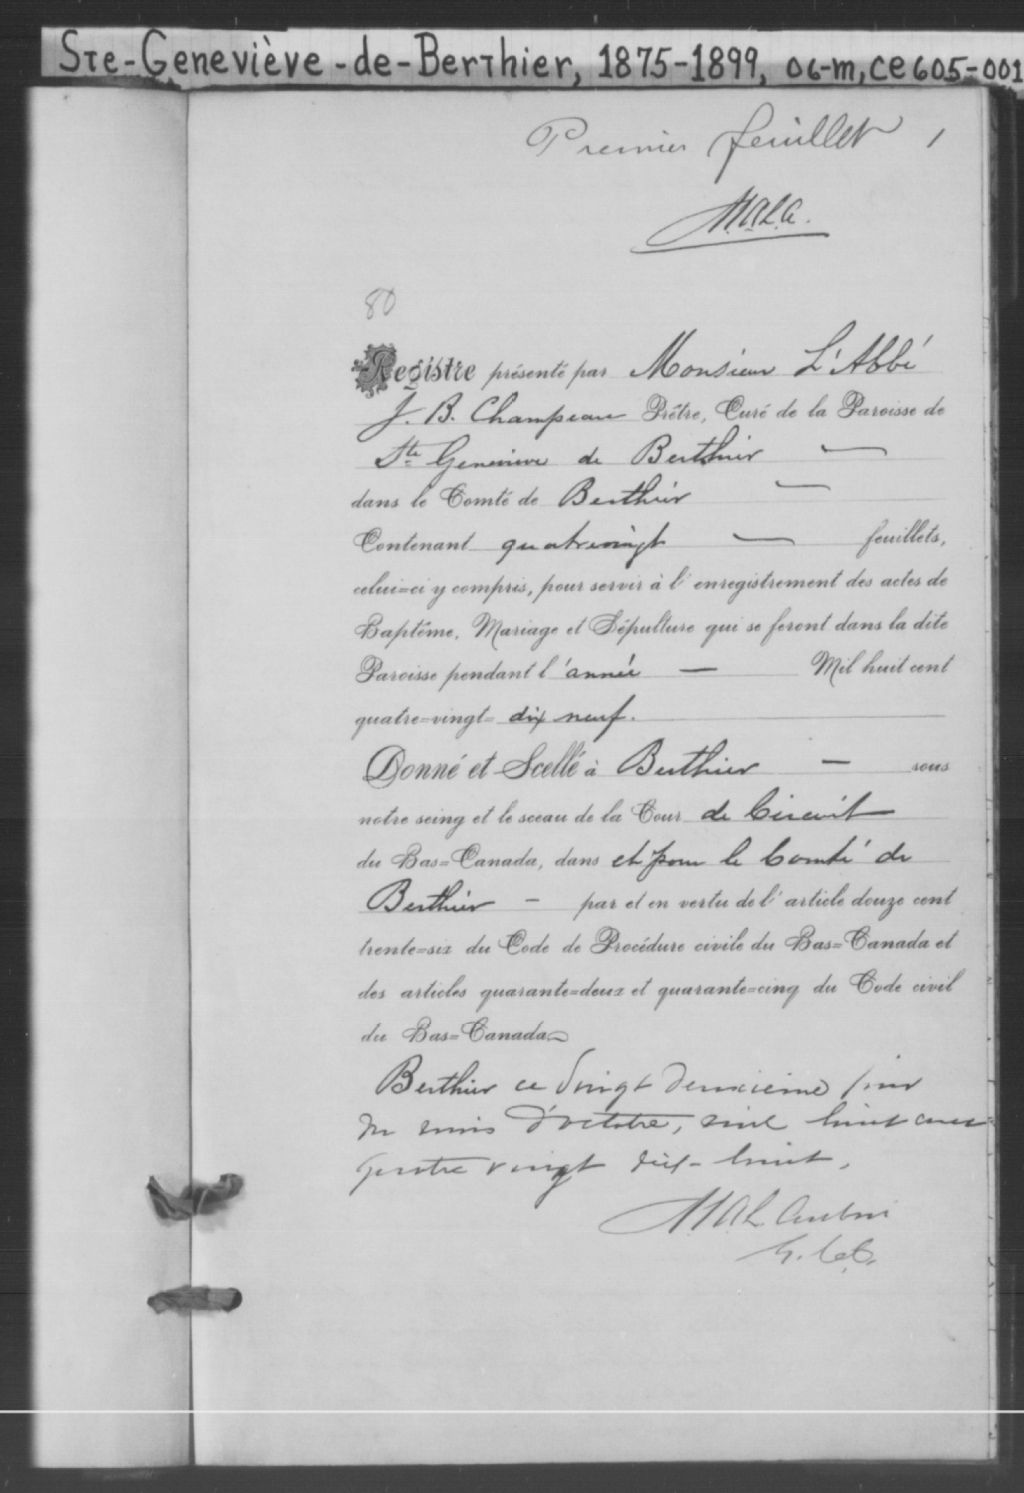 Ste-Geneviève-de-Berthier, 1875-1899, 06-m, ce605-001
Premier feuillet 1
80
Registre présenté par Monsieur L'Abbé
J. B. Champeau Prêtre, Curé de la Paroisse de
Ste Genevieve de Berthier —
dans le Comté de Berthier —
Contenant quatrevingt — feuillets,
celui=ci y compris, pour servir à l'enregistrement des actes de
Baptême, Mariage et Sépulture qui se feront dans la dite
Paroisse pendant l'année — Mil huit cent
quatre=vingt= dix neuf.
Donné et Scellé à Berthier — sous
notre seing et le sceau de la Cour de Circuit
du Bas=Canada, dans et pour le Comté de
Berthier — par et en vertu de l'article douze cent
trente=six du Code de Procédure civile du Bas=Canada et
des articles quarante=deux et quarante=cinq du Code civil
du Bas=Canada
Berthier ce vingt deuxième jour
du mois d'octobre, mil huit cent
quatre vingt dix-huit.